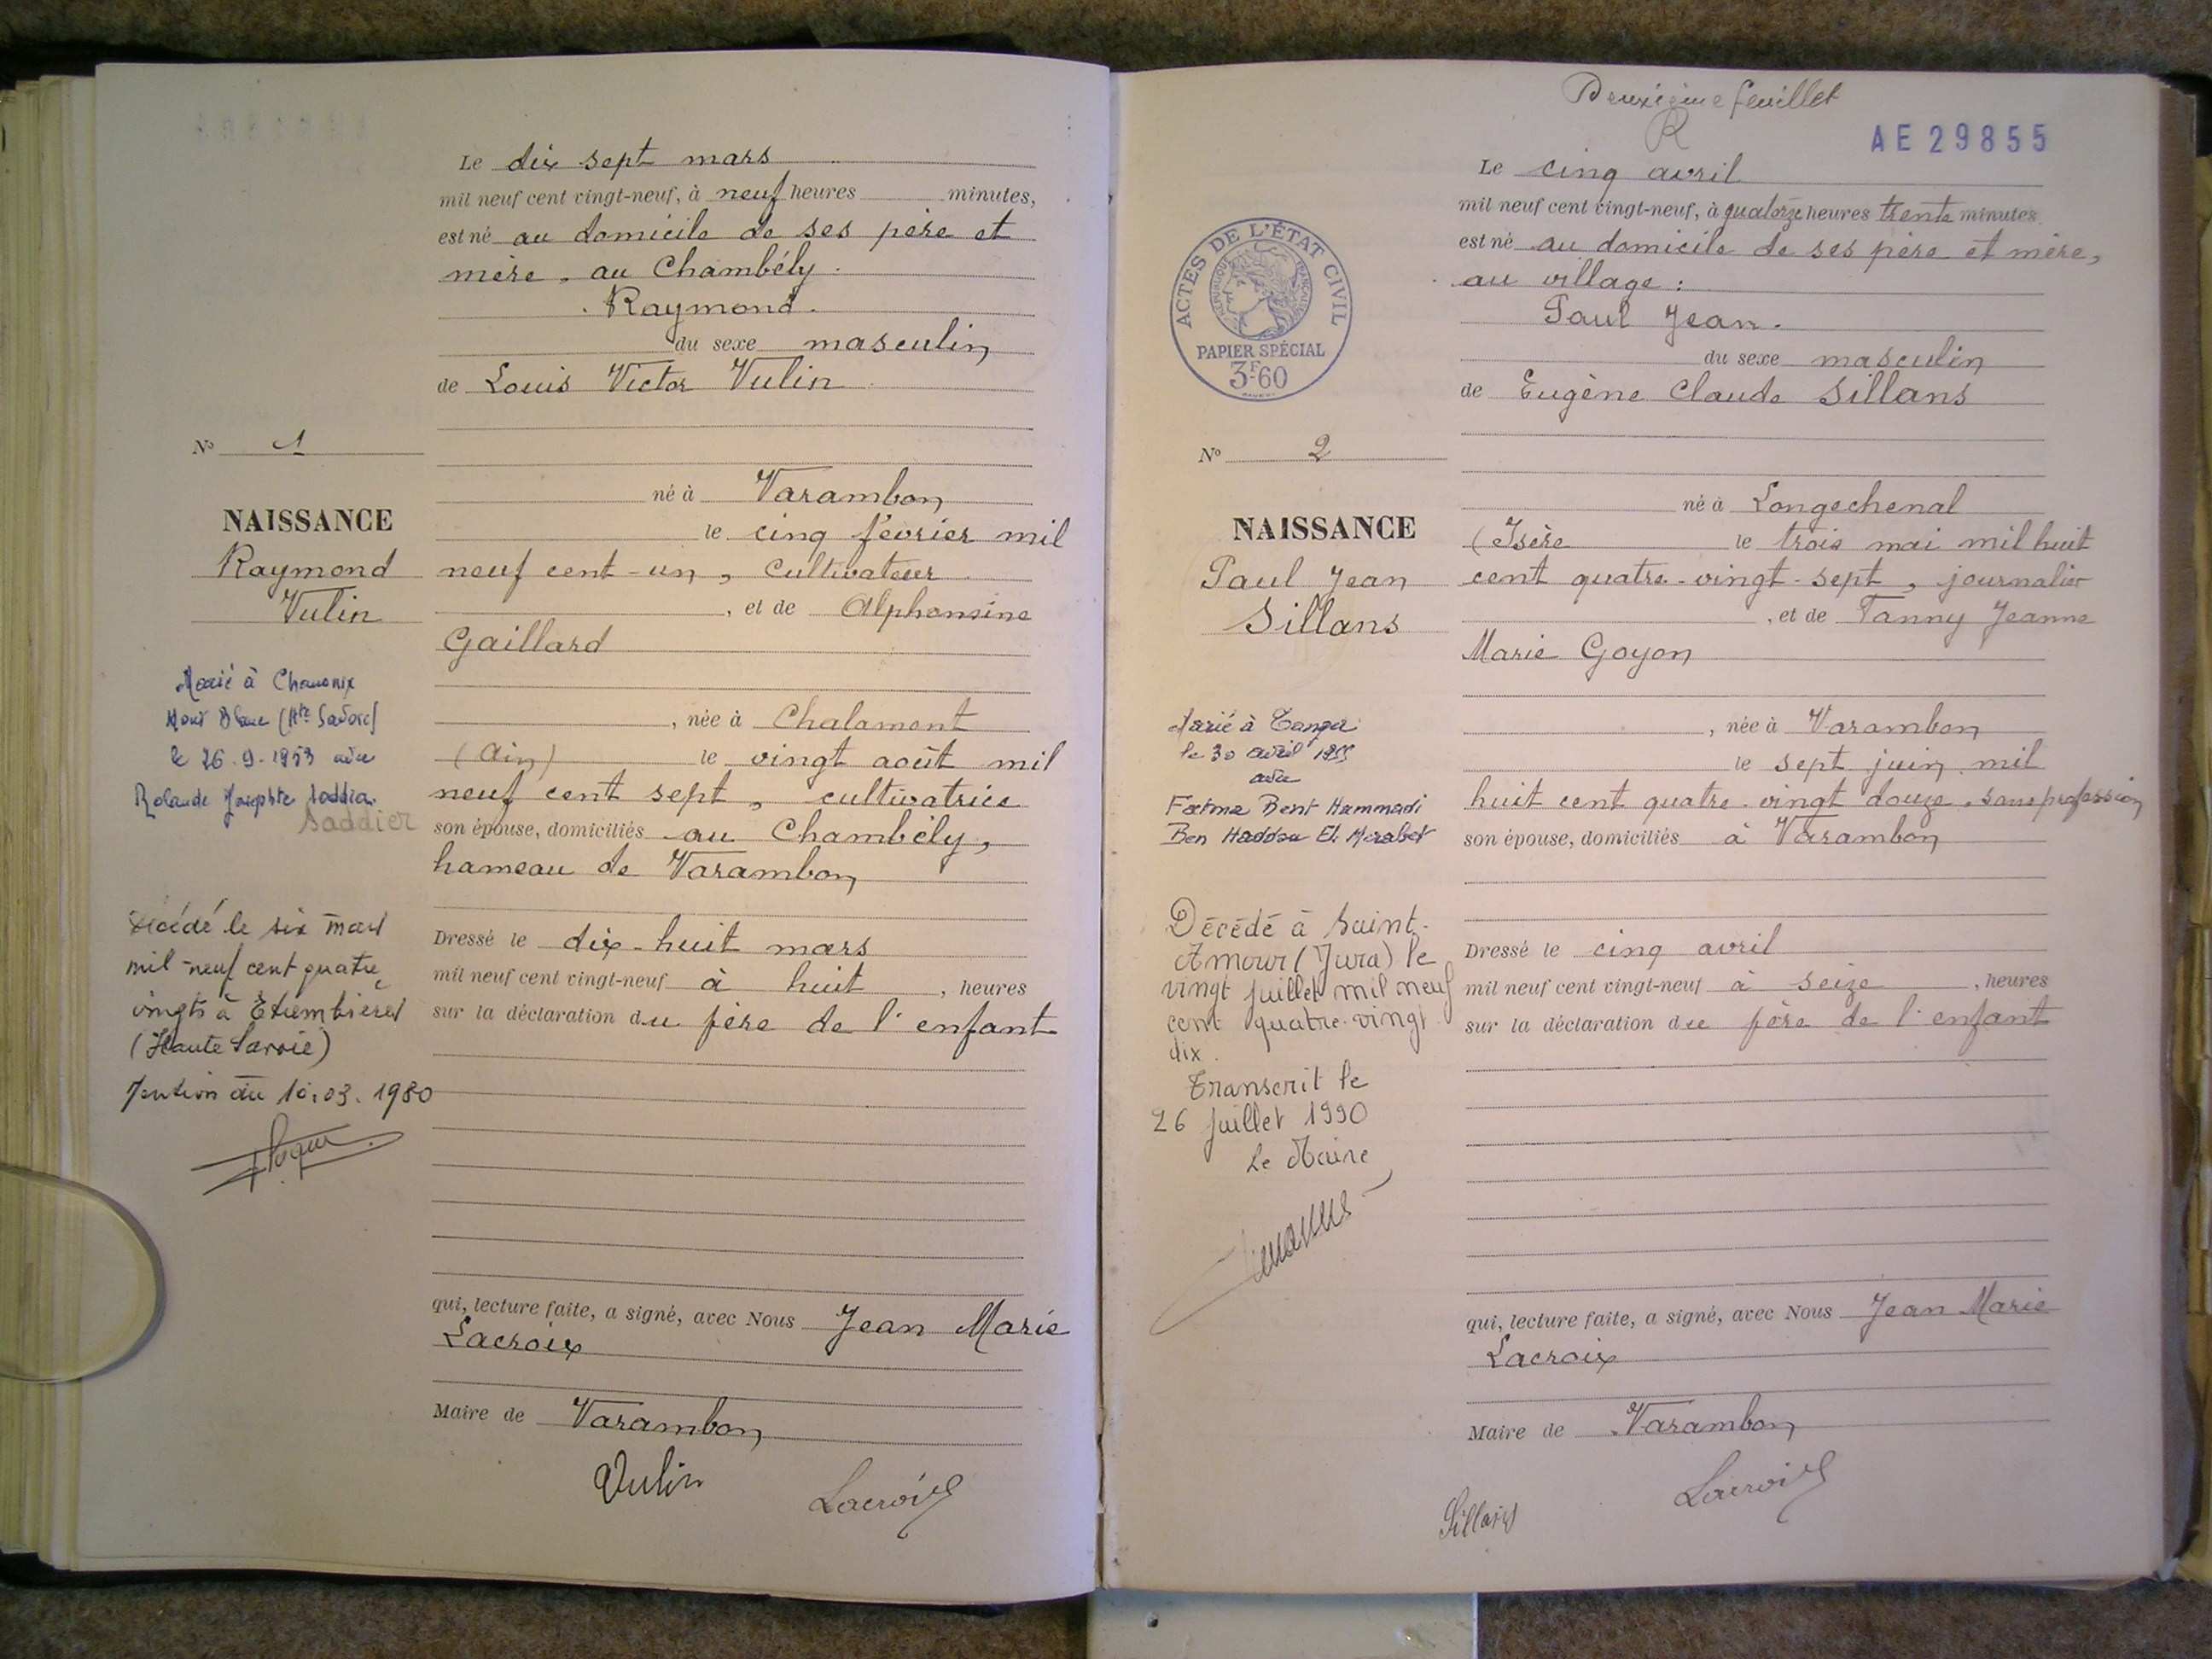 Le dix sept mars
mil neuf cent vingt-neuf, à neuf heures minutes,
est né au domicile de ses père et
mère, au Chambély
Raymond.
du sexe masculin
de Louis Victor Vulin
N° 1
né à Varambon
NAISSANCE
le cinq février mil
Raymond
neuf cent-un, cultivateur
Vulin
, et de Alphonsine
Gaillard
Marié à Chamonix
Mont Blanc (Hte Savoie)
, née à Chalamont
le 26.9.1953 avec
(Ain) le vingt août mil
Rolande Josephte Saddier
Saddier
neuf cent sept, cultivatrice
son épouse, domiciliés au Chambély,
hameau de Varambon
Décédé le six mars
mil-neuf cent quatre
vingts à Etrembières
(Haute Savoie)
Mention du 10.03.1980
Dressé le dix-huit mars
mil neuf cent vingt-neuf à huit , heures
sur la déclaration du père de l'enfant
qui, lecture faite, a signé, avec Nous Jean Marie
Lacroix
Maire de Varambon
Vulin
Lacroix
Deuxième feuillet
R
AE 29855
Le cinq avril
mil neuf cent vingt-neuf, à quatorze heures trente minutes
est né au domicile de ses père et mère,
au village :
Paul Jean.
du sexe masculin
de Eugène Claude Sillans
ACTES DE L'ÉTAT CIVIL
RÉPUBLIQUE FRANÇAISE
PAPIER SPÉCIAL
3F60
N° 2
né à Longechenal
NAISSANCE
(Isère le trois mai mil huit
Paul Jean
cent quatre-vingt-sept, journalier
Sillans
, et de Fanny Jeanne
Marie Goyon
Marié à Tanger
le 30 avril 1955
avec
Fatma Bent Hammadi
Ben Haddou El Merabet
, née à Varambon
le sept juin mil
huit cent quatre-vingt douze, sans profession
son épouse, domiciliés à Varambon
Décédé à Saint-
Amour (Jura) le
vingt juillet mil neuf
cent quatre-vingt
dix.
Transcrit le
26 juillet 1990
Le Maire
Dressé le cinq avril
mil neuf cent vingt-neuf à seize , heures
sur la déclaration du père de l'enfant
qui, lecture faite, a signé, avec Nous Jean Marie
Lacroix
Maire de Varambon
Lacroix
Sillans